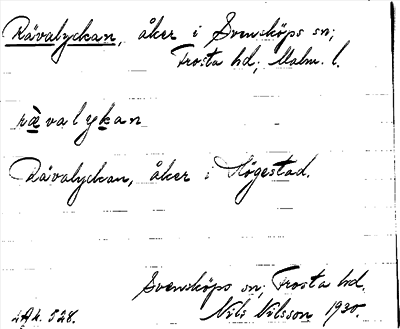 Rävalyckan, åker i Svensköps sn;
Frosta hd; Malm. l.
rävalykan
Rävalyckan, åker i Högestad.
Svensköps sn; Frosta hd.
Ak. 528.
Nils Nilsson 1930.